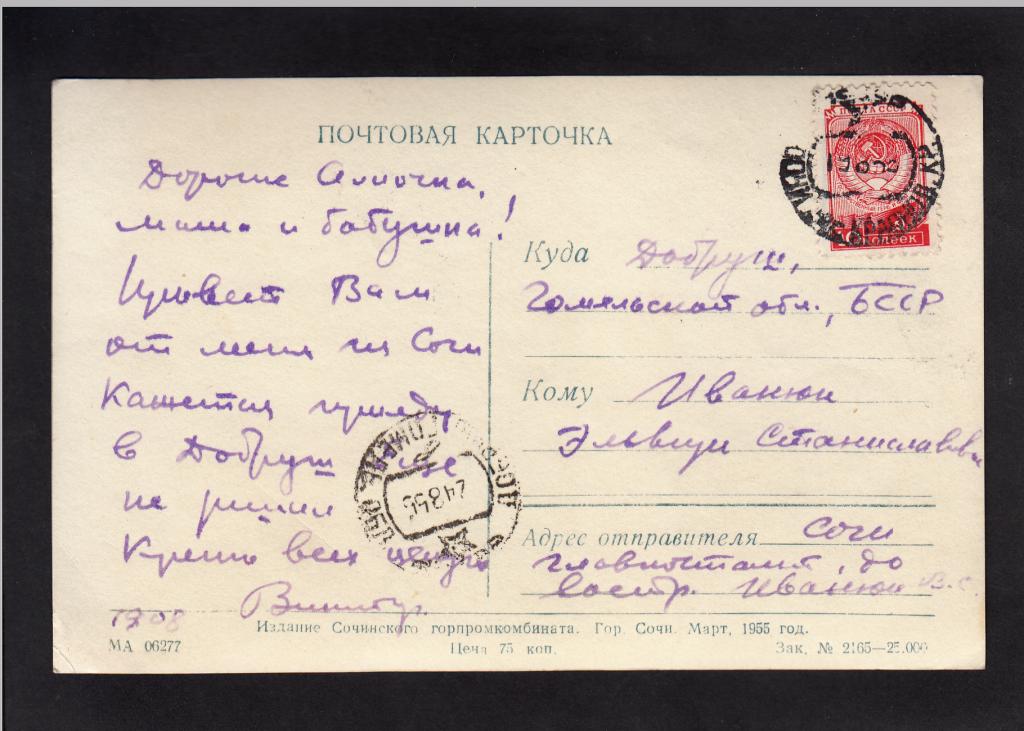 ПОЧТОВАЯ КАРТОЧКА
Дорогие
мама и бабушка!
Привет Вам
от меня из Сочи
Кажется приеду
в Добруш
не решил
Крепко всех целую
17/08
Куда Добруш,
Гомельской обл., БССР
Кому Иванюк
Станиславовне
Адрес отправителя Сочи
главпочтамт, до
востр. Иванюк В.С.
Издание Сочинского горпромкомбината. Гор. Сочи. Март, 1955 год.
МА 06277 Цена 75 коп. Зак. № 2165—25.000